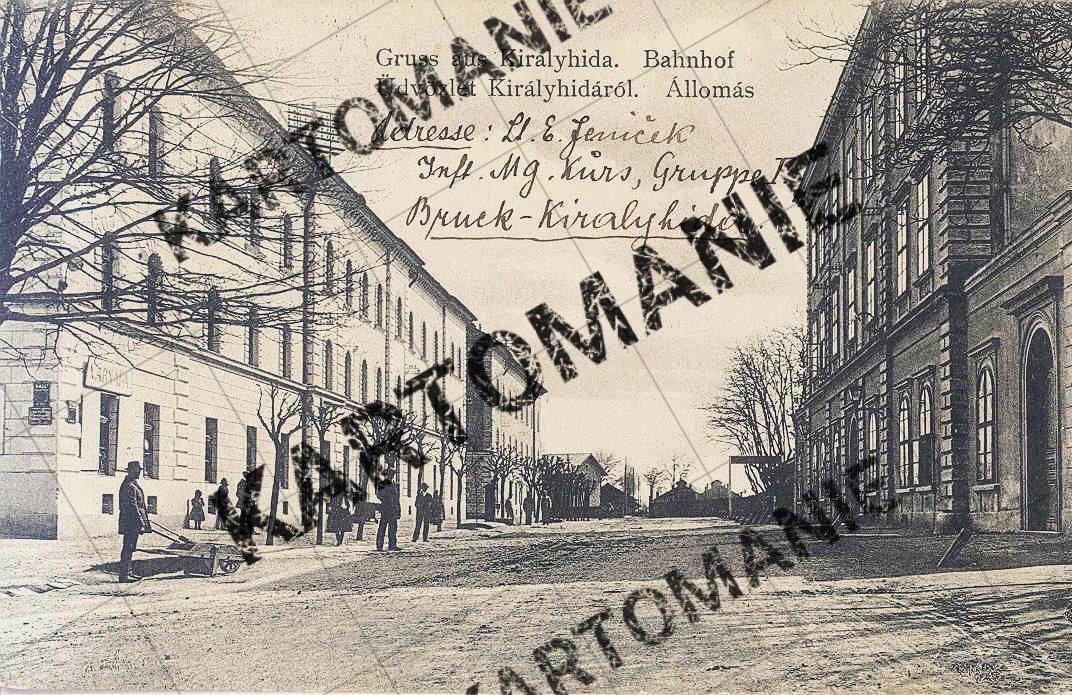 Gruss aus Kiralyhida. Bahnhof
Üdvözlet Királyhidáról. Állomás
Adresse: Lt. E. Jeniček
Inft. Mg. Kurs, Gruppe
Bruck-Kiralyhida.
KARTOMANIE
KARTOMANIE
KARTOMANIE
KARTOMANIE